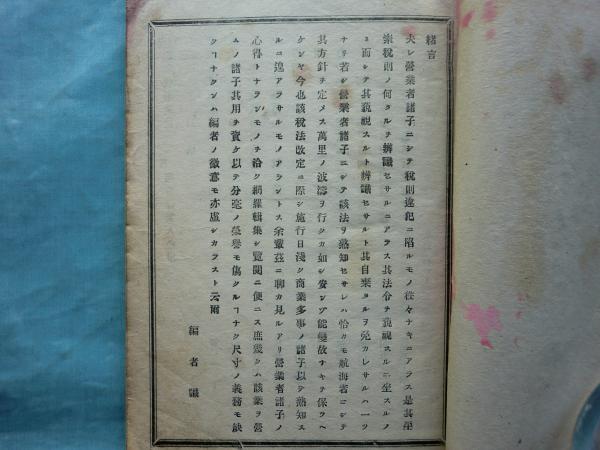 緒言
夫レ營業者諸子ニシテ税則違犯ニ陷ルモノ往々ナキニアラス是其營
業税則ノ何タルヲ辨識セサルニアラス其法令ヲ藐視スルニ坐スルノ
ミ而シテ其藐視スルト辨識セサルト其自業ヨルヲ免カレサルハ一ツ
ナリ若シ營業者諸子ニシテ該法ヲ熟知セサレハ恰カモ航海者ニシテ
其方針ヲ定メス萬里ノ波濤ヲ行クカ如シ安ンソ能變故ナキヲ保ラヘ
ケンヤ今也該税法改定ニ際シ施行日淺ク商業多事ノ諸子以テ熟知ス
ルニ遑アラサルモノアラントス余輩茲ニ聊カ見ルアリ營業者諸子ノ
心得トナランモノヲ洽ク網羅輯集シ覽閲ニ便ニス庶幾クハ該業ヲ營
ムノ諸子其用ヲ資ケ以テ分毫ノ榮譽モ傷クルヿナク尺寸ノ義務モ缺
クヿナクンハ編者ノ微意モ亦虚シカラスト云爾
編者識